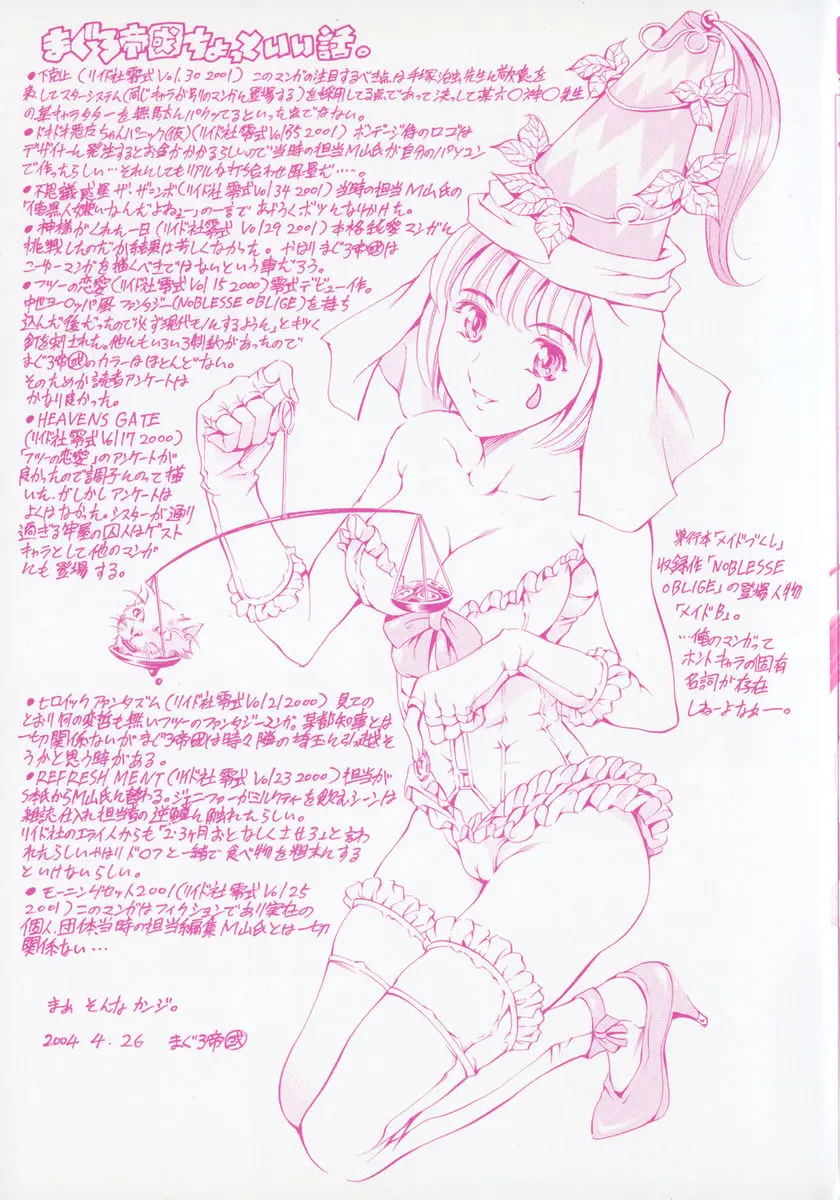 まぐろ帝國ちょっといい話。
●下剋上(リイド社零式Vol.30 2001) このマンガの注目するべき点は手塚治虫先生に敬意を
表してスターシステム(同じキャラが別のマンガに登場する)を採用してる点であって決して某六〇神〇先生
の某キャラクターを無断でパクってるといった点ではない。
(リイド社零式Vol.35 2001) ボンデージ侍のロゴは
デザイナーに発注するとお金がかかるらしいので当時の担当M山氏が自分のパソコン
で作ったらしい…それにしてもリアルな
●不思議惑星ザ・ザンボ(リイド社零式Vol.34 2001) 当時の担当M山氏の
「俺異人嫌いなんだよねェ」の一言であやうくボツになりかけた。
●神様がくれた一日(リイド社零式Vol.29 2001) 本格純愛マンガに
挑戦したのだが結果は芳しくなかった。やはりまぐろ帝國は
こーゆーマンガを描くべきではないという事だろう。
●フツーの恋愛(リイド社零式Vol.15 2000) 零式デビュー作。
中世ヨーロッパ風ファンタジー(NOBLESSE OBLIGE)を持ち
込んだ後だったので「必ず現代モノにするように」とキツく
釘を刺された。他にもいろいろ制約があったので
まぐろ帝國のカラーはほとんどない。
そのためか読者アンケートは
かなり良かった。
●HEAVENS GATE
(リイド社零式Vol.17 2000)
「フツーの恋愛」のアンケートが
良かったので調子にのって描
いた。がしかしアンケートは
よくはなかった。シスターが通り
過ぎる牢屋の囚人はゲスト
キャラとして他のマンガ
にも登場する。
単行本「メイドづくし」
収録作「NOBLESSE
OBLIGE」の登場人物
「メイドB」。
…俺のマンガって
ホントキャラの固有
名詞が存在
しねーよなぁー。
●ヒロイックファンタズム(リイド社零式Vol.21 2000) 見ての
とおり何の変哲も無いフツーのファンタジーマンガ。某都知事とは
一切関係ないがまぐろ帝國は時々隣の埼玉に引越そ
うかと思う時がある。
●REFRESHMENT(リイド社零式Vol.23 2000) 担当が
S本氏からM山氏に替わる。ジェニファーがミルクティーを飲むシーンは
雑誌仕入れ担当者の逆鱗に触れたらしい。
リイド社のエライ人からも「2・3ヶ月おとなしくさせろ」と言わ
れたらしい。やはりドロンと一緒で食べ物を粗末にする
といけないらしい。
●モーニングセット2001(リイド社零式Vol.25
2001) このマンガはフィクションであり実在の
個人、団体、当時の担当編集M山氏とは一切
関係ない…
まぁ そんなカンジ。
2004 4.26 まぐろ帝國